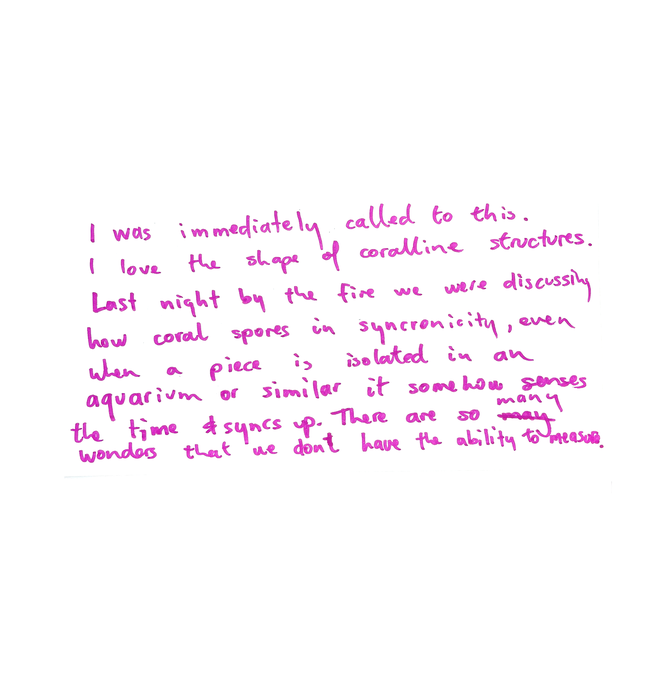 I was immediately called to this.
I love the shape of coralline structures.
Last night by the fire we were discussing
how coral spores in syncronicity, even
when a piece is isolated in an
aquarium or similar it somehow senses
the time & syncs up. There are so many
wonders that we don't have the ability to measure.